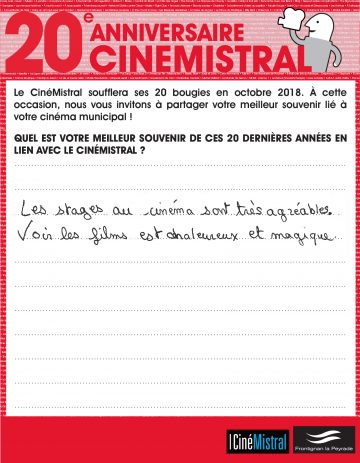 20e ANNIVERSAIRE
CINEMISTRAL
Le CinéMistral soufflera ses 20 bougies en octobre 2018. À cette
occasion, nous vous invitons à partager votre meilleur souvenir lié à
votre cinéma municipal !
QUEL EST VOTRE MEILLEUR SOUVENIR DE CES 20 DERNIÈRES ANNÉES EN
LIEN AVEC LE CINÉMISTRAL ?
Les stages au cinéma sont très agréables.
Voir les films est chaleureux et magique
CinéMistral
Frontignan la Peyrade